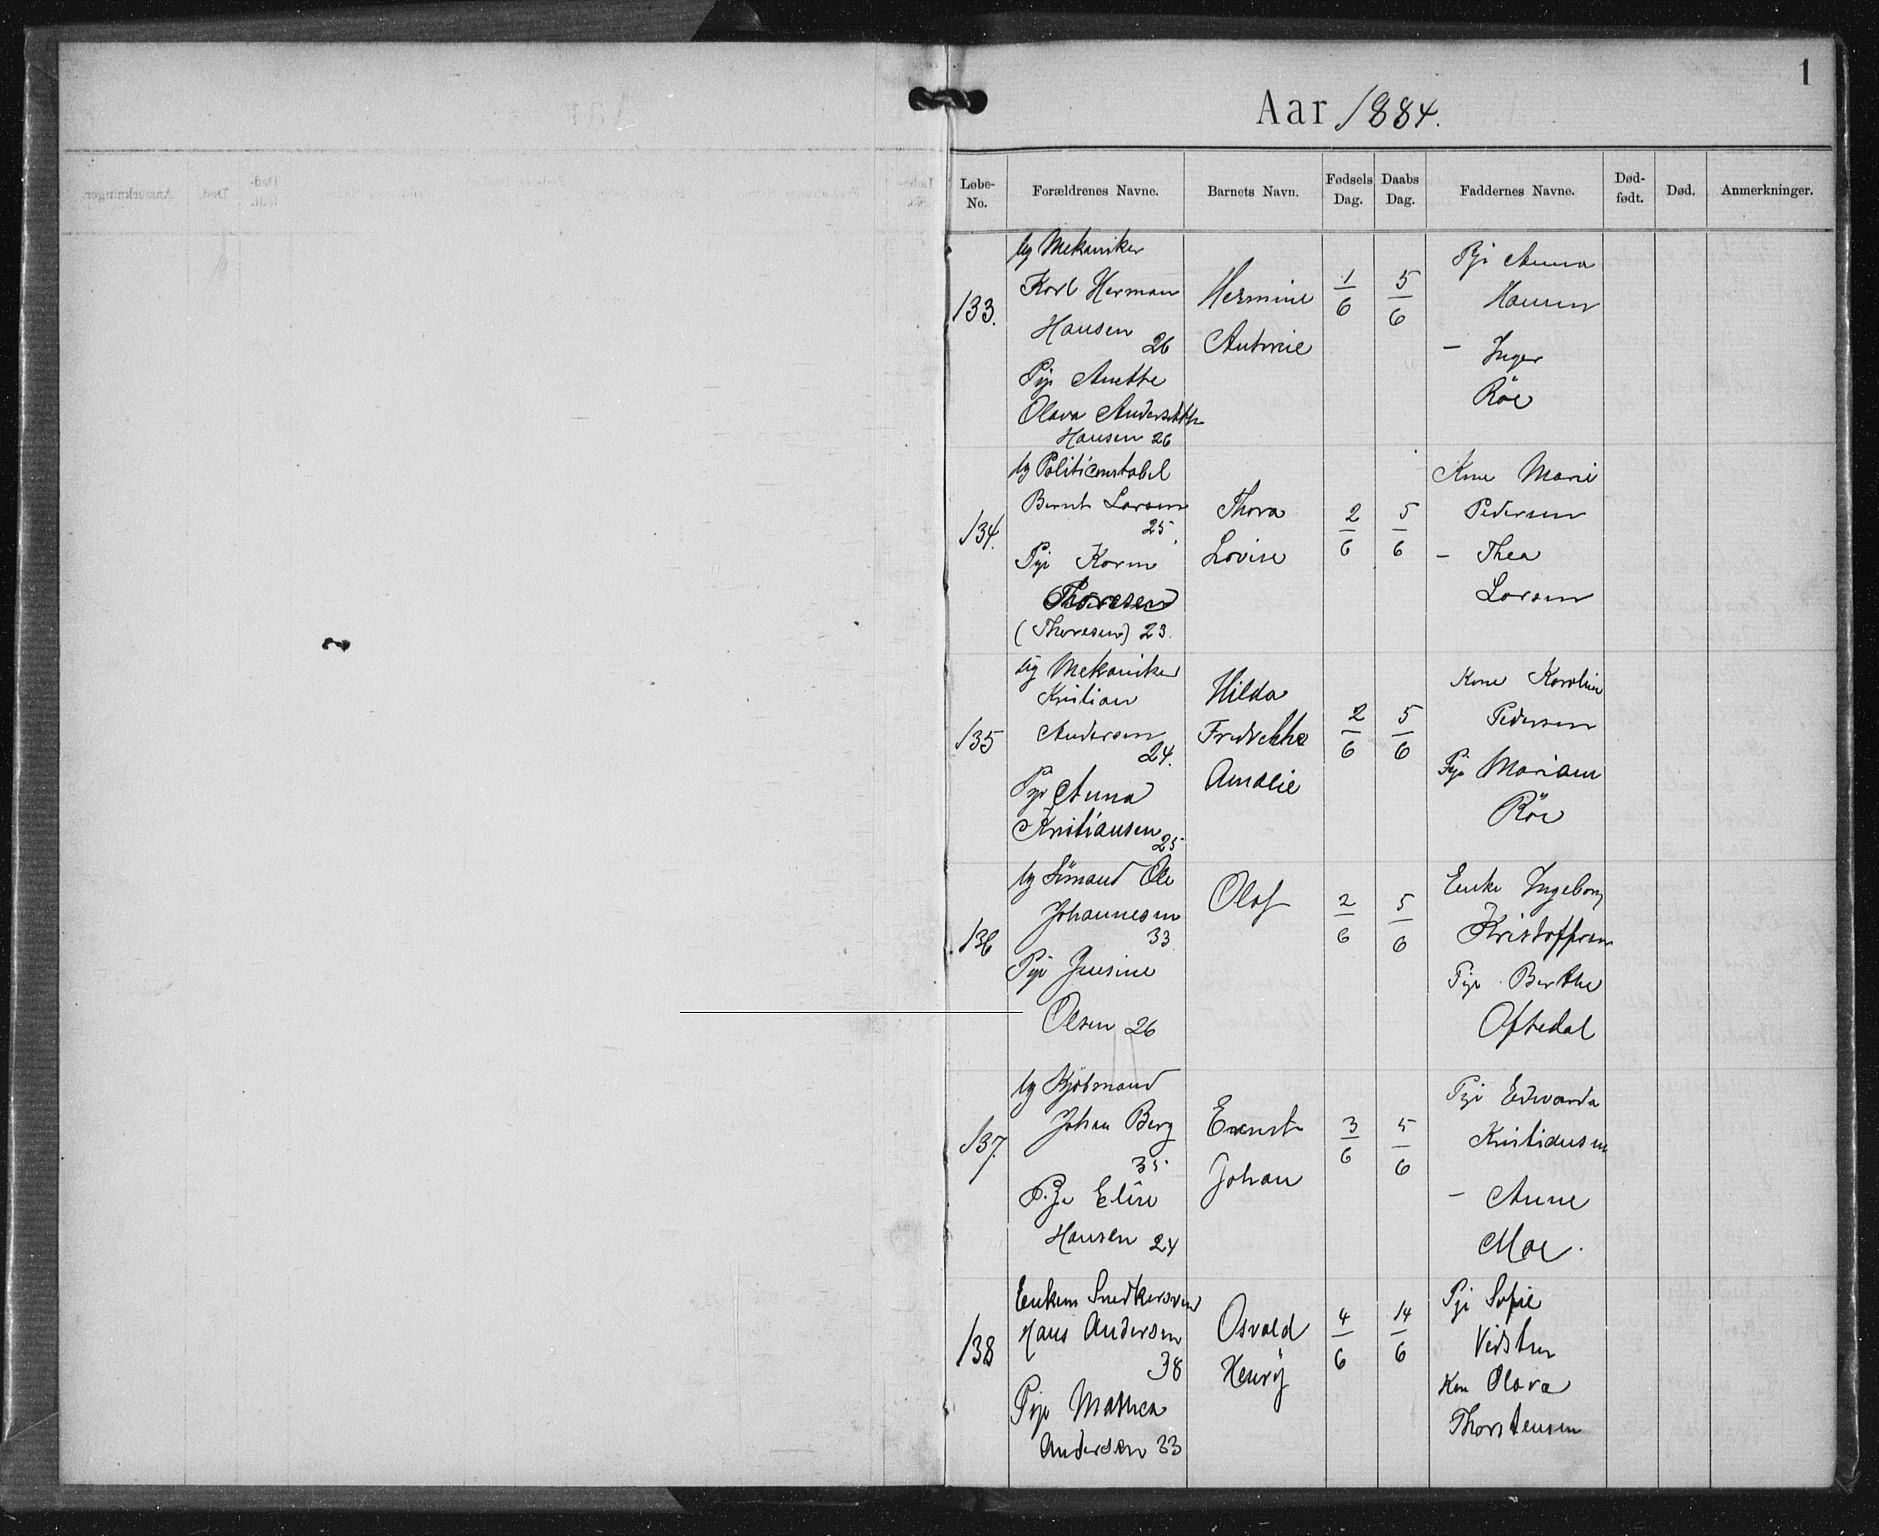 1
Aar 1884.
Løbe-No. Forældrenes Navne. Barnets Navn. Fødsels Dag. Daabs Dag. Faddernes Navne. Død-født. Død. Anmerkninger.
133.
Ug Mekaniker
Karl Herman
Hansen 26
Pige Anette
Olava
Hansen 26
Hermine
Antonie
1/6
5/6
Pige Anna
Hansen
- Inger
Röe
134.
Ug Politiconstabel
Bernt Larsen
25
Pige Karen
(Thoresen) 23.
Thora
Lovise
2/6
5/6
Kone Marie
Pedersen
- Thea
Larsen
135
Ug Mekaniker
Kristian
Andersen
24.
Pige Anna
Kristiansen
25
Hilda
Fredrikke
Amalie
2/6
5/6
Kone Karoline
Pedersen
Pige Mariane
Röe
136
Ug Sömand Ole
Johannesen
33
Pige Jensine
Olsen 26
Olaf
2/6
5/6
Enke Ingeborg
Kristoffersen
Pige Berthe
Oftedal
137.
Ug Kjøbmand
Johan Berg
35
Pige Elise
Hansen 24
Ernst
Johan
3/6
5/6
Pige Edvarda
Kristiansen
- Anne
Moe.
138
Enkem Snedkersvend
Hans Andersen
38
Pige Mathea
Andersen 33
Osvald
Henrÿ
4/6
14/6
Pige Sofie
Vedsten
Kone Olava
Thorstensen